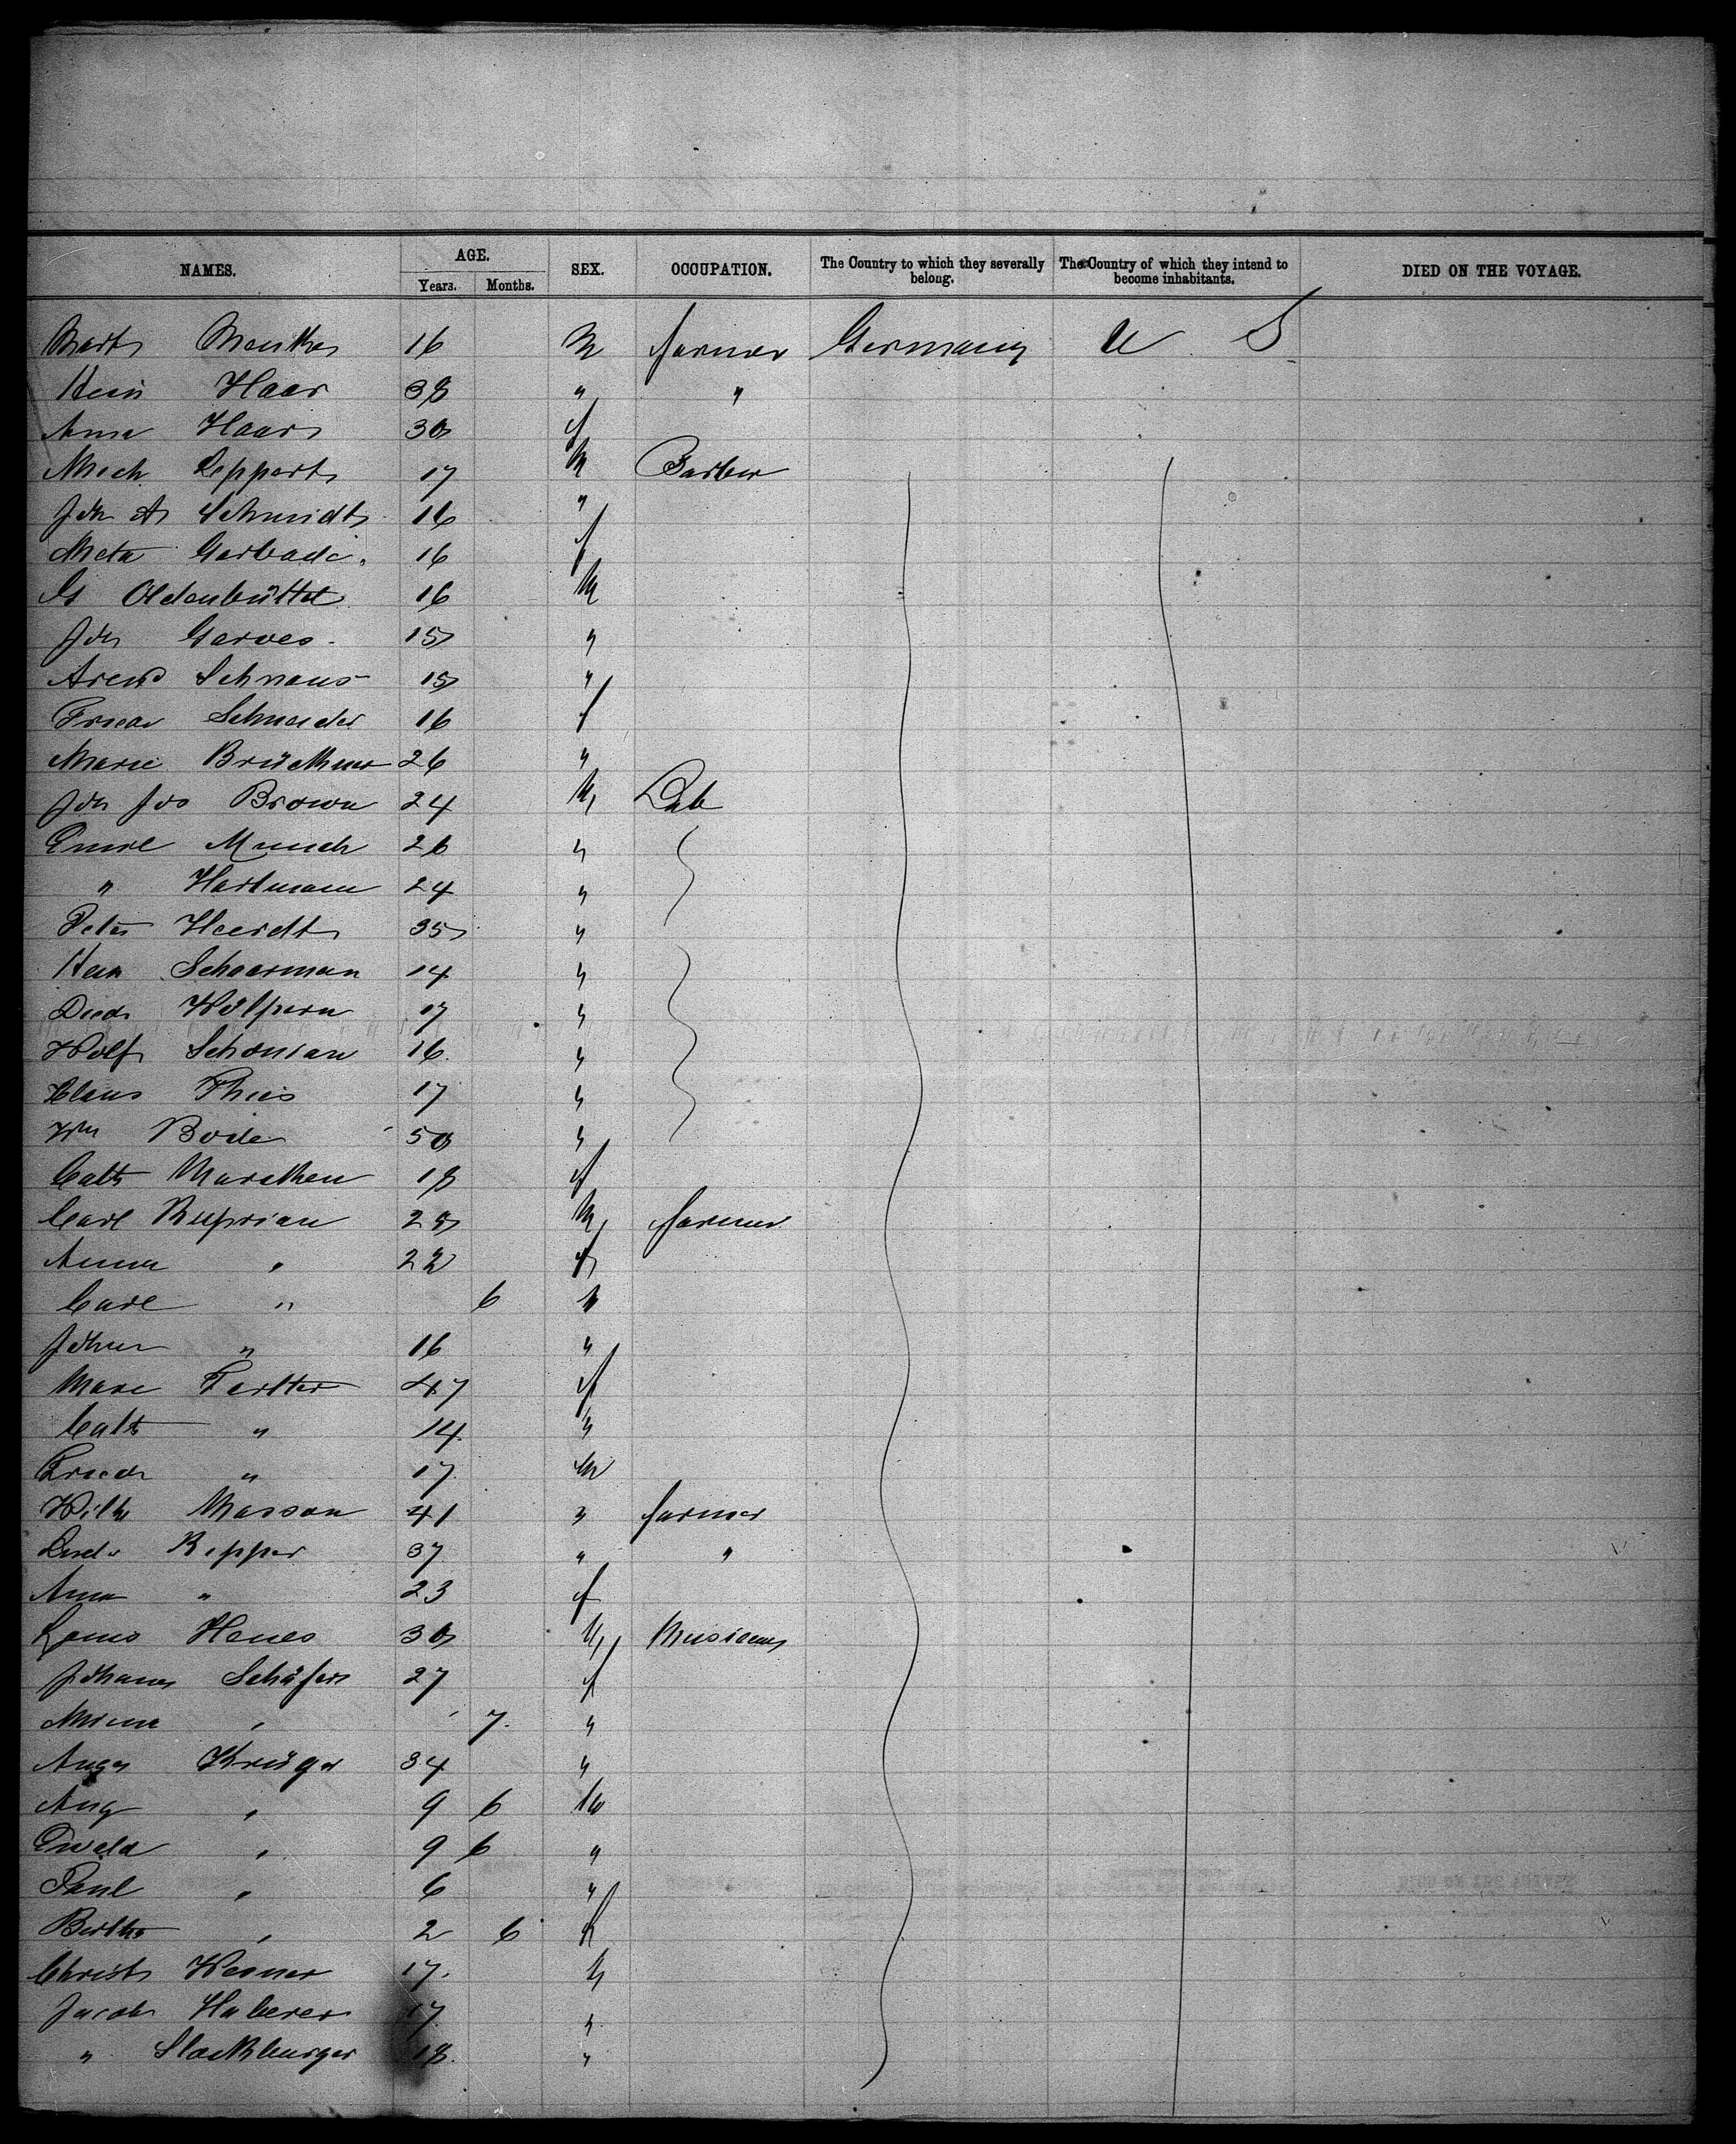 NAMES. AGE. SEX. OCCUPATION. The Country to which they severally belong. The Country of which they intend to become inhabitants. DIED ON THE VOYAGE.
Years. Months.
16 M farmer Germany U S
Hein Haar 38 " "
Anna Haar 30 f
Mich Leppert 17 M Barber
Joh A Schmidt 16 "
Meta Garbade 16 f
G Oldenbüttel 16 M
Joh Garves 15 "
Arend Schnaus 15 "
Schneider 16 f
Marie 26 "
Joh Jos Brown 24 M Lab
Emil Munch 26 "
" Hartmann 24 "
Peter Heerdt 35 "
Hein Schoorman 14 "
Died Wölpern 17 "
Wolf Schonian 16 "
Claus Thies 17 "
Wm Bode 50 "
Cath 18 f
Carl Ruprian 25 M farmer
Anna " 22 f
Carl " 6 M
Johan " 16 "
Marie 47 f
Cath " 14 "
Friedr " 17 M
Wilh Masson 41 " farmer
Repper 37 " "
Anna " 23 f
Louis Henes 30 M Musician
Johanna Schäfer 27 f
Minna " 7 "
Krüger 34 "
Aug " 9 6 M
Ewald " 9 6 "
Paul " 6 "
Bertha " 2 6 f
Christ Wesner 17 M
Jacob Haberer 17 "
" Slackburger 18 "